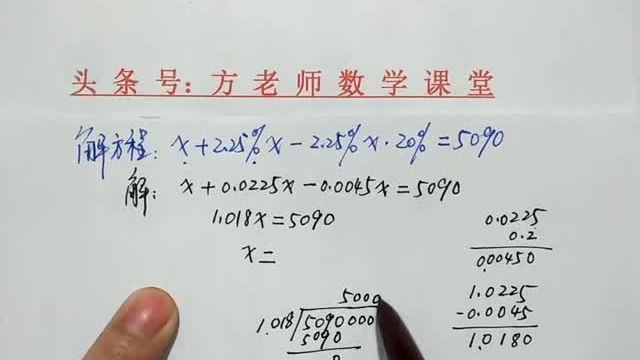 头条号：方老师数学课堂
解方程：x+2.25%x-2.25%x·20%=5090
解：x+0.0225x-0.0045x=5090
1.018x=5090
x=
0.0225
0.2
0.00450
1.0225
-0.0045
1.0180
5000
1.018 5090000
5090
0